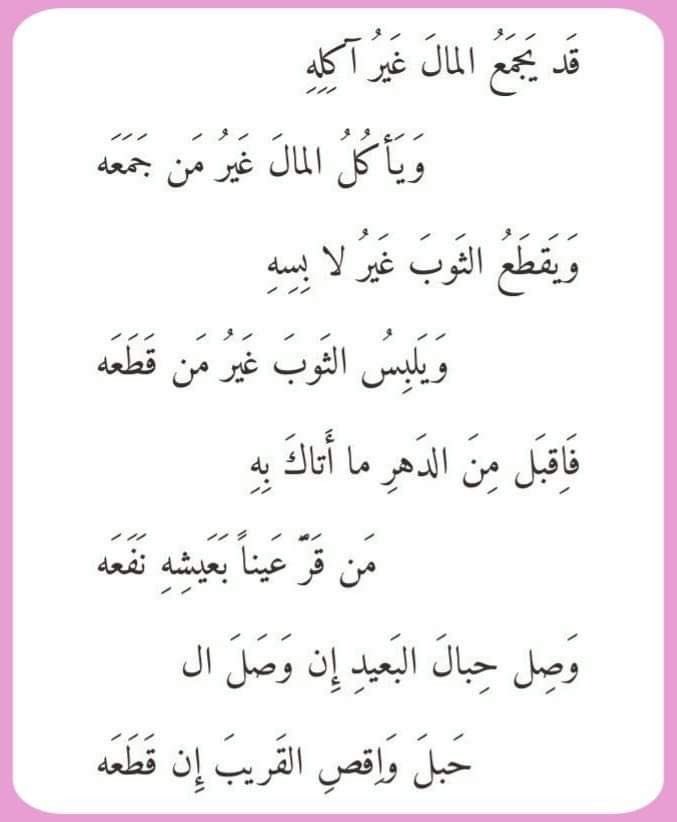 قَد يَجمَعُ المالَ غَيرُ آكِلِهِ
وَيَأكُلُ المالَ غَيرُ مَن جَمَعَه
وَيَقطَعُ الثَوبَ غَيرُ لا بِسِهِ
وَيَلبِسُ الثَوبَ غَيرُ مَن قَطَعَه
فَاِقبَل مِنَ الدَهرِ ما أَتاكَ بِهِ
مَن قَرَّ عَيناً بَعَيشِهِ نَفَعَه
وَصِل حِبالَ البَعيدِ إِن وَصَلَ ال
حَبلَ وَاِقصِ القَريبَ إِن قَطَعَه